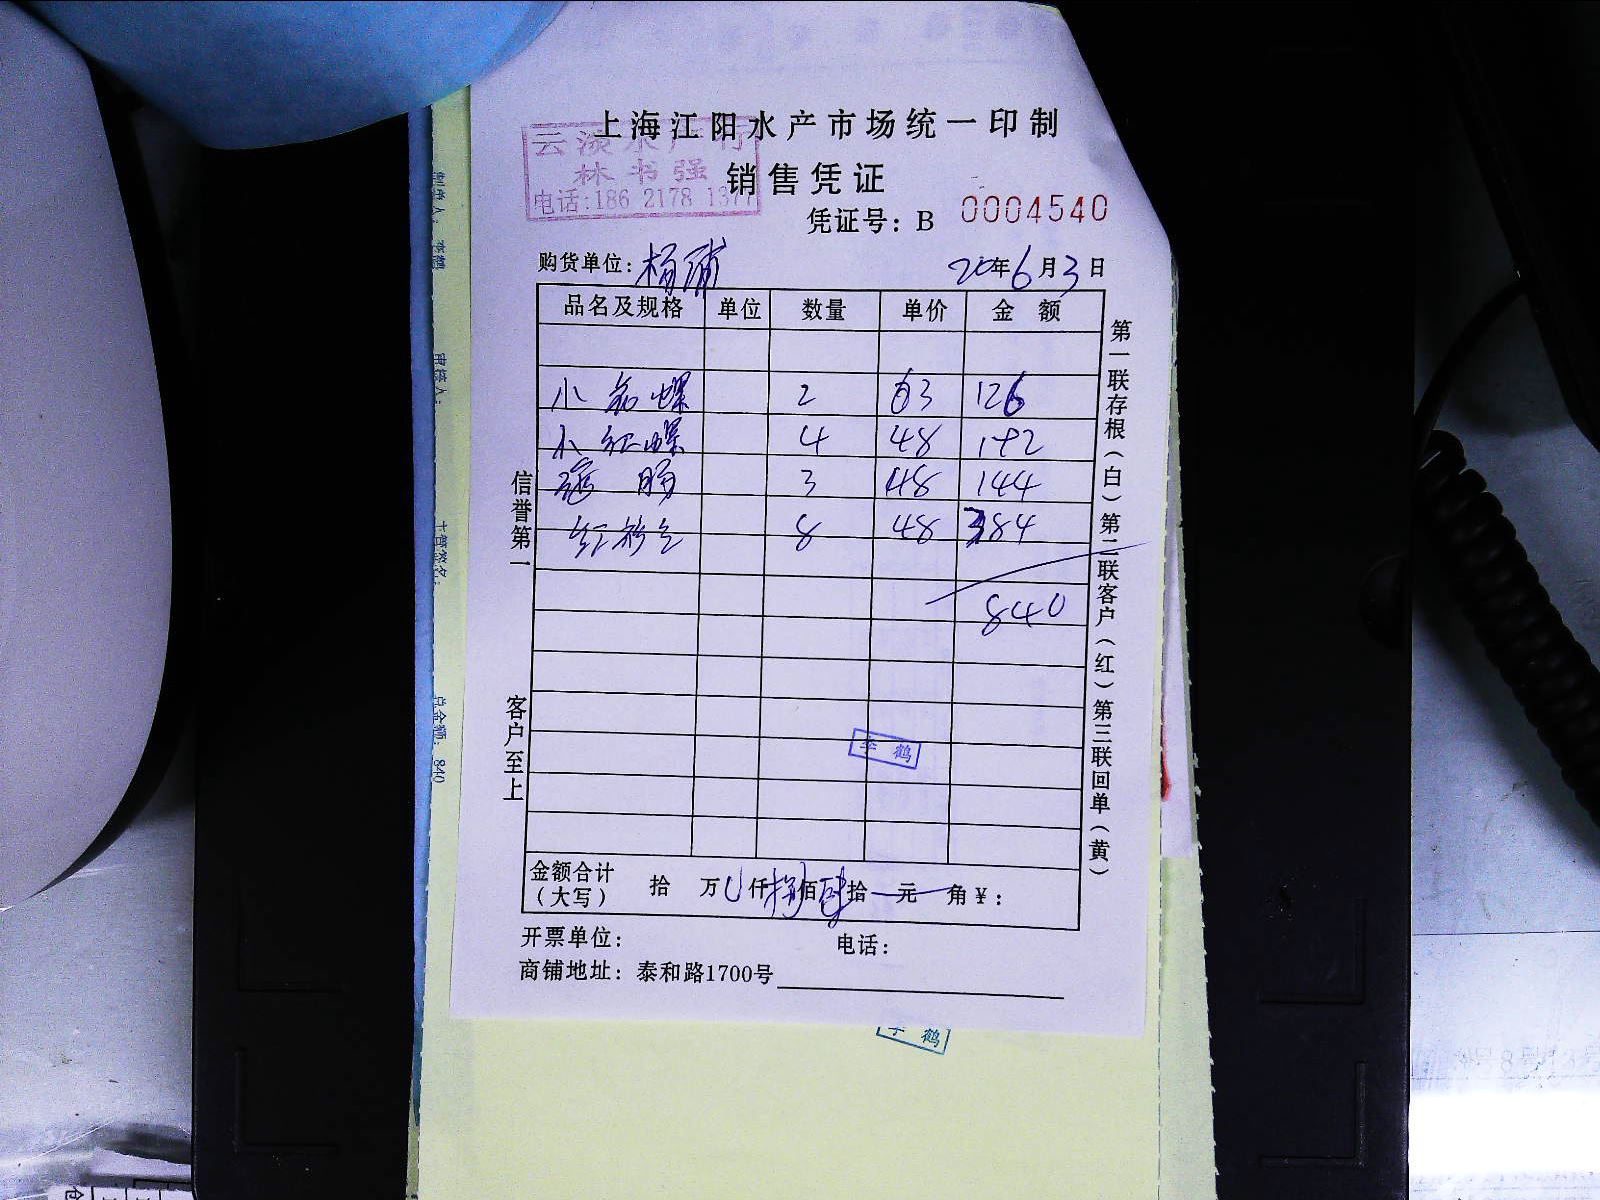 上海江阳水产市场统一印制
云渎水产行
林书强
电话:186 2178 1377
销售凭证
凭证号: B 0004540
购货单位: 杨浦
20年6月3日
品名及规格 单位 数量 单价 金额
小 螺 2 63 126
小红螺 4 48 192
肠 3 48 144
红 8 48 384
840
李鹤
金额合计(大写) 拾 万 仟 捌佰肆拾 元 角 ¥:
开票单位: 电话:
商铺地址: 泰和路1700号
信誉第一 客户至上
第一联存根(白)第二联客户(红)第三联回单(黄)
李鹤
总金额: 840